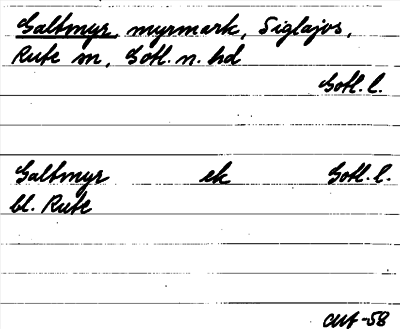 Galtmyr, myrmark, Siglajvs,
Rute sn, Gotl. n. hd
Gotl. l.
Galtmyr ek Gotl. l.
bl. Rute